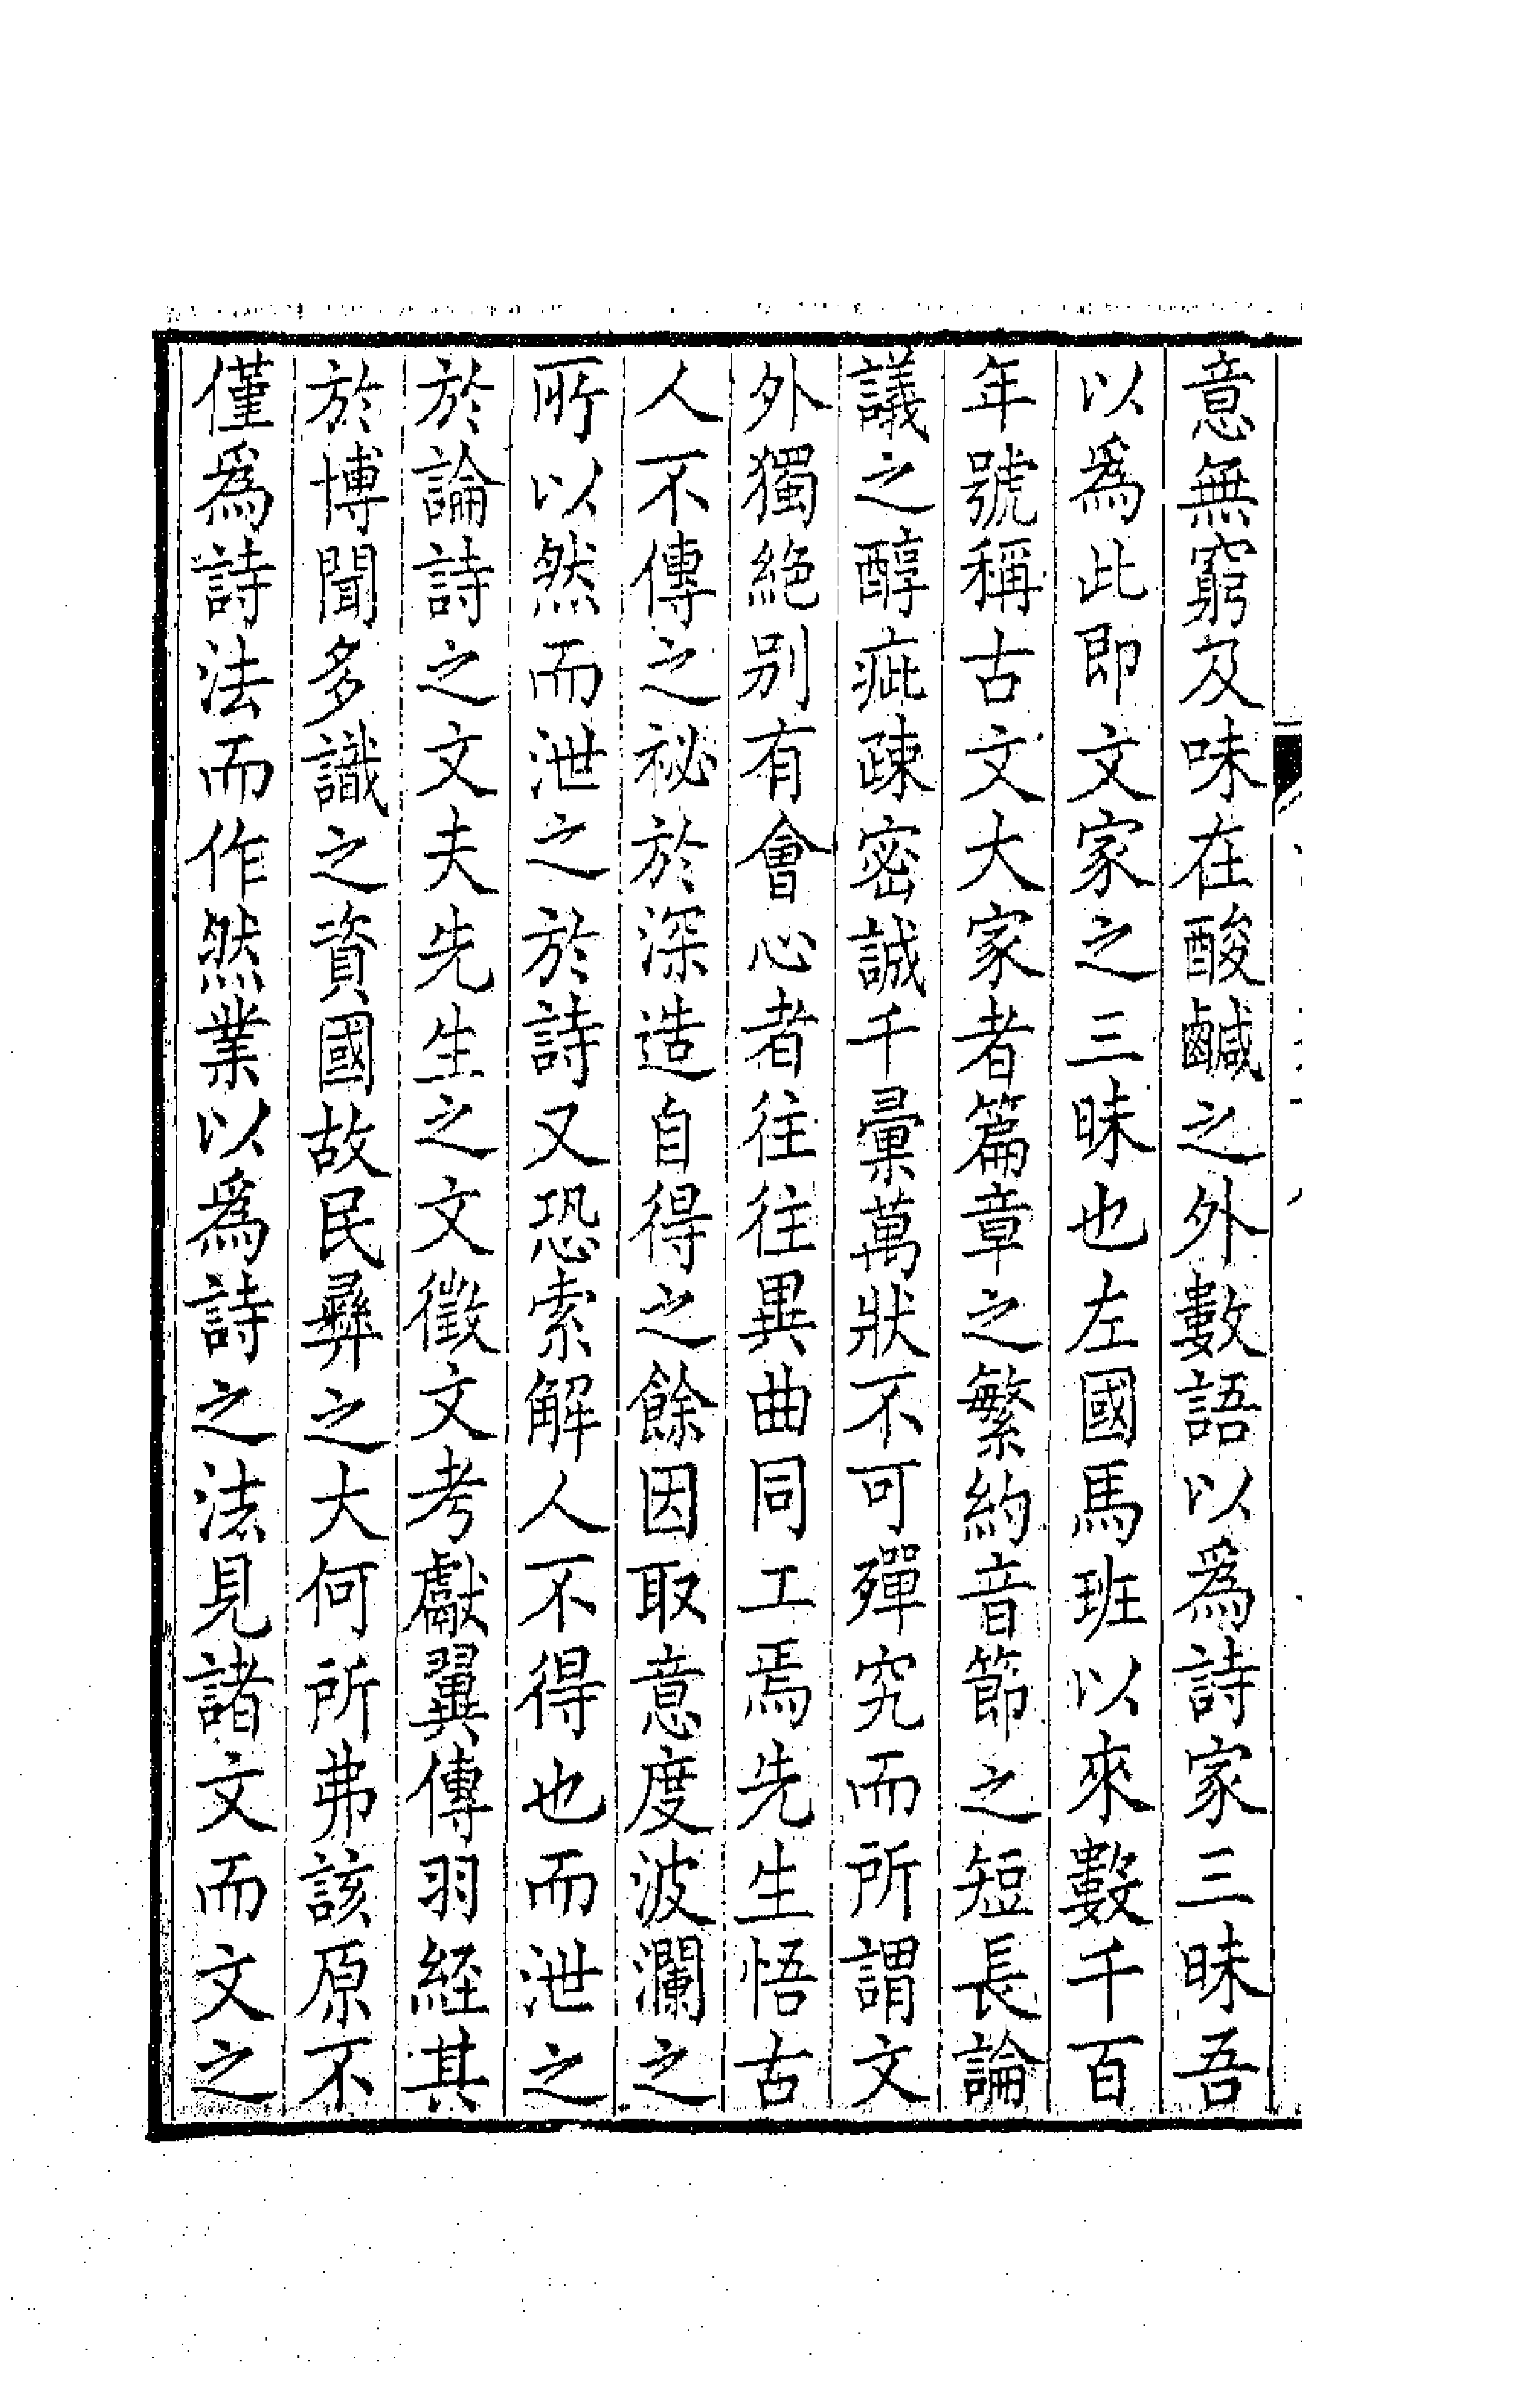 意無窮及味在酸鹹之外數語以爲詩家三昧吾
以爲此即文家之三昧也左國馬班以來數千百
年號稱古文大家者篇章之繁約音節之短長論
議之醇疵疎密誠千彚萬狀不可殫究而所謂文
外獨絶别有會心者往往異曲同工焉先生悟古
人不傳之祕於深造自得之餘因取意度波瀾之
所以然而泄之於詩又恐索解人不得也而泄之
於論詩之文夫先生之文徵文考獻翼傳羽經其
於博聞多識之資國故民彝之大何所弗該原不
僅爲詩法而作然業以爲詩之法見諸文而文之